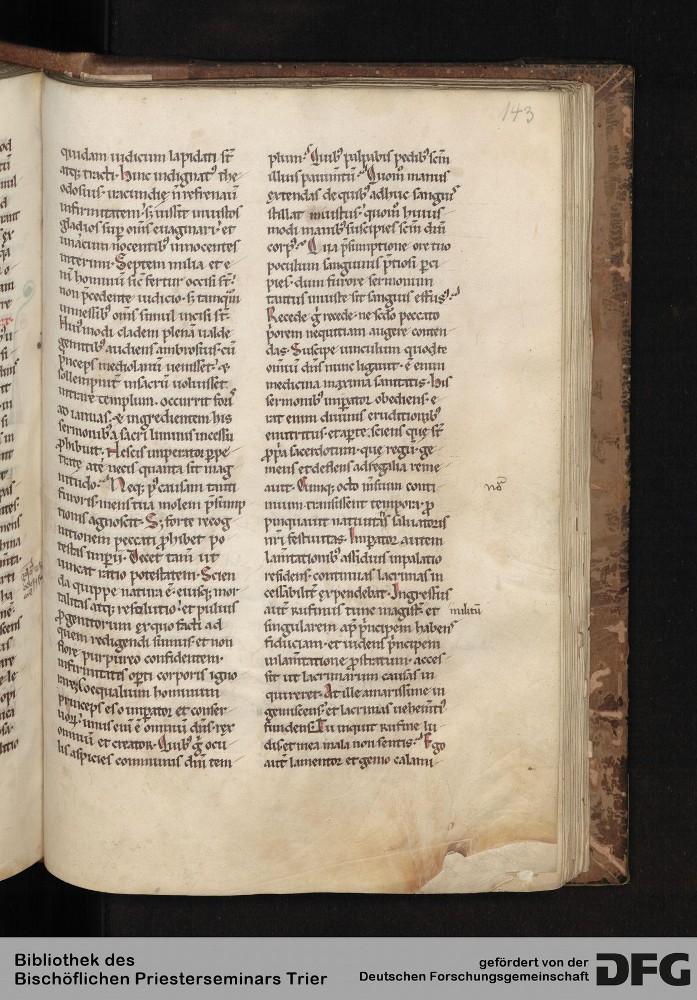 143
quidam iudicum lapidati st̄
atq; tracti. Hinc indignatꝰ the
odosius. iracundię n̄ refrenauit
infirmitatem. s; iussit iniustos
gladios sup om̄s euaginari. et
una cum nocentibꝰ innocentes
interimi. Septem milia et e
nī hominū sic fertur occisi st̄.
non p̄cedente iudicio. s; tamquā
in messibꝰ om̄s simul incisi st̄.
Huiꝰmodi cladem plenā ualde
gemitibꝰ audiens ambrosius. cū
p̄nceps mediolanū uenisset. &
sollempnit̄ in sacrū uoluisset
intrare templum. occurrit foris
ad ianuas. & ingredientem his
sermonibꝰ a sacri liminis incessu
ꝓhibuit. Nescis imperator ꝑpe
trate a te necis quanta sit mag
nitudo. Neq; p̄ causam tanti
furoris. mens tua molem p̄sump
tionis agnoscit. S; forte recog
nitionem peccati ꝓhibet po
testas imperii. Decet tam̄ ut
uincat ratio potestatem. Scien
da quippe natura ē. eiusq; mor
talitas atq; resolutio. et puluis
ꝓgenitorum ex quo facti ad
quem redigendi sumus. et non
flore purpureo confidentem.
infirmitatis oꝑti corporis igno
rare. Coequalium hominum
princeps es o imꝑator et conser
uorꝝ. unus eni ē omniū dn̄s. rex
omniū et creator. Quibꝰ g̊ ocu
lis aspicies communis dn̄i tem
plum. Quibꝰ calcabis pedibꝰ sc̄m
illius pauimtū. Quom̊ manus
extendas de quibꝰ adhuc sanguis
stillat iniustus. quom̊ huius
modi manibꝰ suscipies sc̄m dn̄i
corpꝰ. Qua p̄sumptione ore tuo
poculum sanguinis p̄tiosi ꝑci
pies. dum furore sermonum
tantus iniuste sit sanguis effusꝰ.
Recede g̊ recede. ne sc̄do peccato
p̄orem nequitiam augere conten
das. Suscipe uinculum quo dte
omniū dn̄s nunc ligauit. ē enim
medicina maxima sanitatis. his
sermonibꝰ imꝑator obediens. e
rat enim diuinis eruditionibꝰ
enutritus. et aꝑte. sciens que st̄
ꝓp̄a sacerdotum. que regū. ge
mens et deflens ad regalia reme
auit. Cumq; octo m̄sium conti
nuum transissent tempora. ꝓ
pinquauit natiuitas saluatoris
nr̄i festiuitas. Imꝑator autem
lam̄tationibꝰ assiduis in palatio
residens. continuas lacrimas in
cessabilit̄ expendebat. Ingressus
aut̄ rufinus tunc magist̄. et militū
singularem ap̄ p̄ncipem habens
fiduciam. et uidens p̄ncipem
in lam̄tatione ꝓstratum. acces
sit ut lacrimarum causas in
quireret. At ille amarissime in
gemiscens. et lacrimas uehem̄ti
fundens. Tu inquit rufine lu
dis et mea mala non sentis. Ego
aut̄ lamentor et gemo calami
Bibliothek des
Bischöflichen Priesterseminars Trier
gefördert von der
Deutschen Forschungsgemeinschaft
DFG